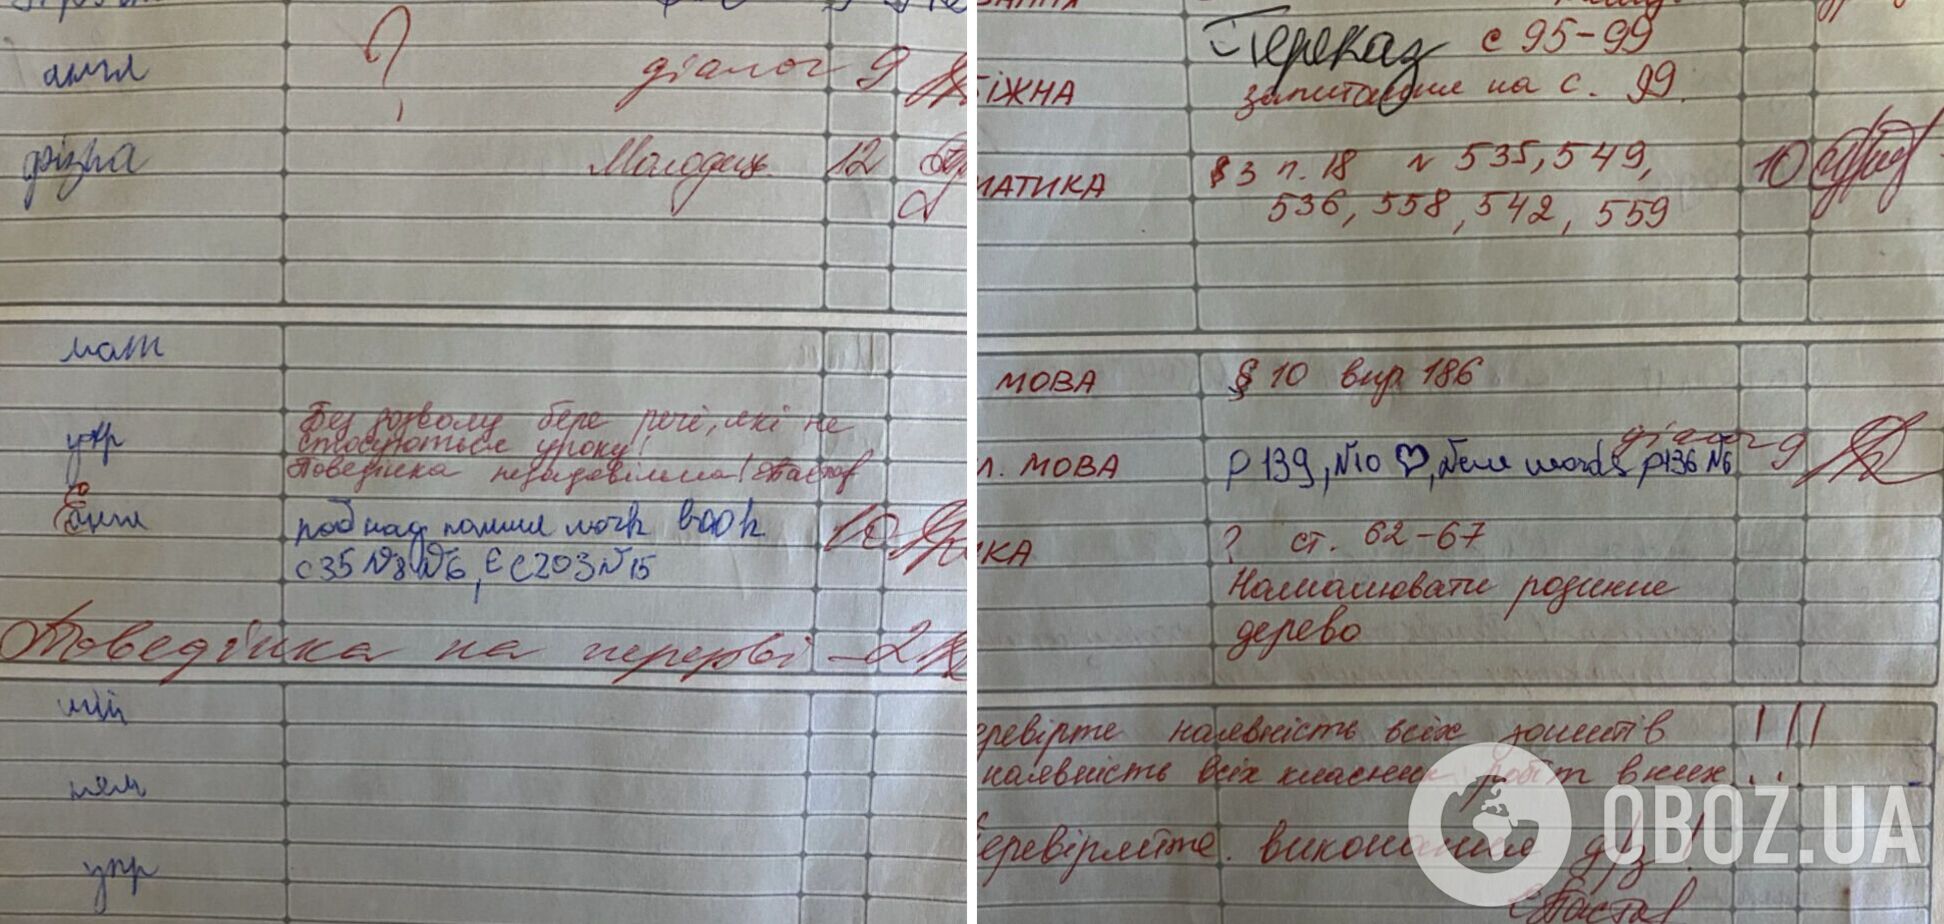 англ ? діалог 9
фізна Молодець 12
мат
укр Без дозволу бере речі, які не
стосуються уроку!
Поведінка незадовільна!
Англ work book 10
с 35 №8 №6, с 203 №15
Поведінка на перерві – 2
укр
Переказ с 95-99
ІЖНА запитання на с. 99.
МАТИКА §3 п. 18 № 535, 549, 10
536, 558, 542, 559
МОВА § 10 впр 186
діалог 9
Л. МОВА р 139, №10 ♡, New words р136 №6
КА ? ст. 62-67
Намалювати родинне
дерево
еревірте наявність всіх зошитів !!!
наявність всіх класних робіт в них...
еревіряйте виконання д/з!
OBOZ.UA